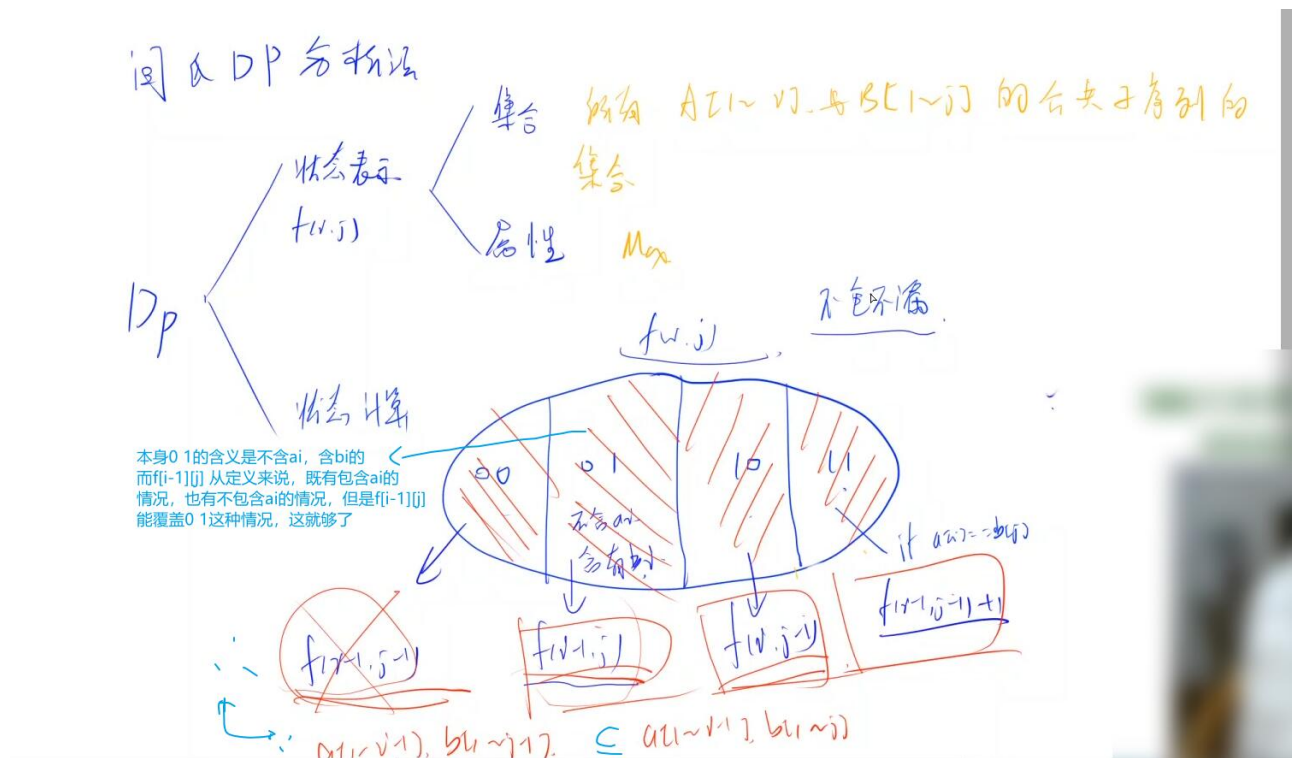 闫氏DP分析法
集合 所有A[1~i]与B[1~j]的公共子序列的
集合
状态表示
f(i,j)
属性 Max
不包不漏
f(i,j)
DP
状态计算
本身0 1的含义是不含ai，含bi的
而f[i-1][j] 从定义来说，既有包含ai的
情况，也有不包含ai的情况，但是f[i-1][j]
能覆盖0 1这种情况，这就够了
00 01 10 11
不含ai
含有bj
if a[i]==b[j]
f(i-1,j-1) f(i-1,j) f(i,j-1) f(i-1,j-1)+1
∴
∵ a[1~i-1], b[1~j-1] ⊆ a[1~i-1], b[1~j]